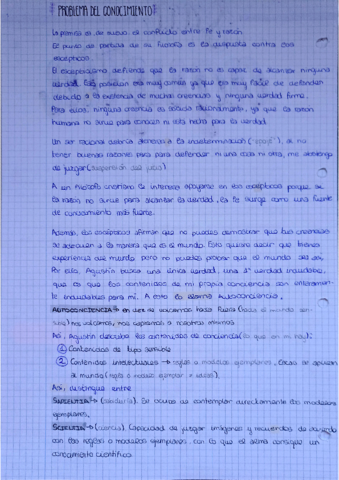 PROBLEMA DEL CONOCIMIENTO
La premisa es de nuevo el conflicto entre fe y razón.
El punto de partida de su filosofía es la disputa contra los
escépticos.
El escepticismo defiende que la razón no es capaz de alcanzar ninguna
verdad. Esta posición era muy cómoda ya que era muy fácil de defender
debido a la existencia de muchas creencias y ninguna verdad firme.
Para ellos, ninguna creencia es sólida racionalmente, ya que la razón
humana no sirve para conocer ni está hecha para la verdad.
Un ser racional debería atenerse a la indeterminación (epojé), si no
tener buenas razones para para defender ni una cosa ni otra, me abstengo
de juzgar (suspensión del juicio)
A un filósofo cristiano le interesa apoyarse en los escépticos porque si
la razón no sirve para alcanzar la verdad, la fe surge como una fuente
de conocimiento más fuerte.
Además, los escépticos afirman que no puedes demostrar que tus creencias
se adecuan a la manera que es el mundo. Esto quiere decir que tienes
experiencia del mundo pero no puedes probar que el mundo sea así.
Por ello, Agustín busca una única verdad, una 1ª verdad indudable,
que es que los contenidos de mi propia conciencia son enteramen-
te indudables para mí. A esto le llama Autoconciencia.
AUTOCONCIENCIA → en vez de volcarnos hacia fuera (hacia el mundo sen-
sible) nos volcamos, nos captamos a nosotros mismos.
Así, Agustín descubre los contenidos de conciencia (lo que en mí hay):
① Contenidos de tipo sensible
② Contenidos intelectuales → reglas o modelos ejemplares. Cosas se ajustan
a mundo (regla o modelo ejemplar = ideas).
Así, distingue entre
SAPIENTIA → (sabiduría). Se ocupa de contemplar directamente los modelos
ejemplares.
SCIENTIA → (ciencia) Capacidad de juzgar imágenes y recuerdos de acuerdo
con las reglas o modelos ejemplares, con lo que el alma consigue un
conocimiento científico.